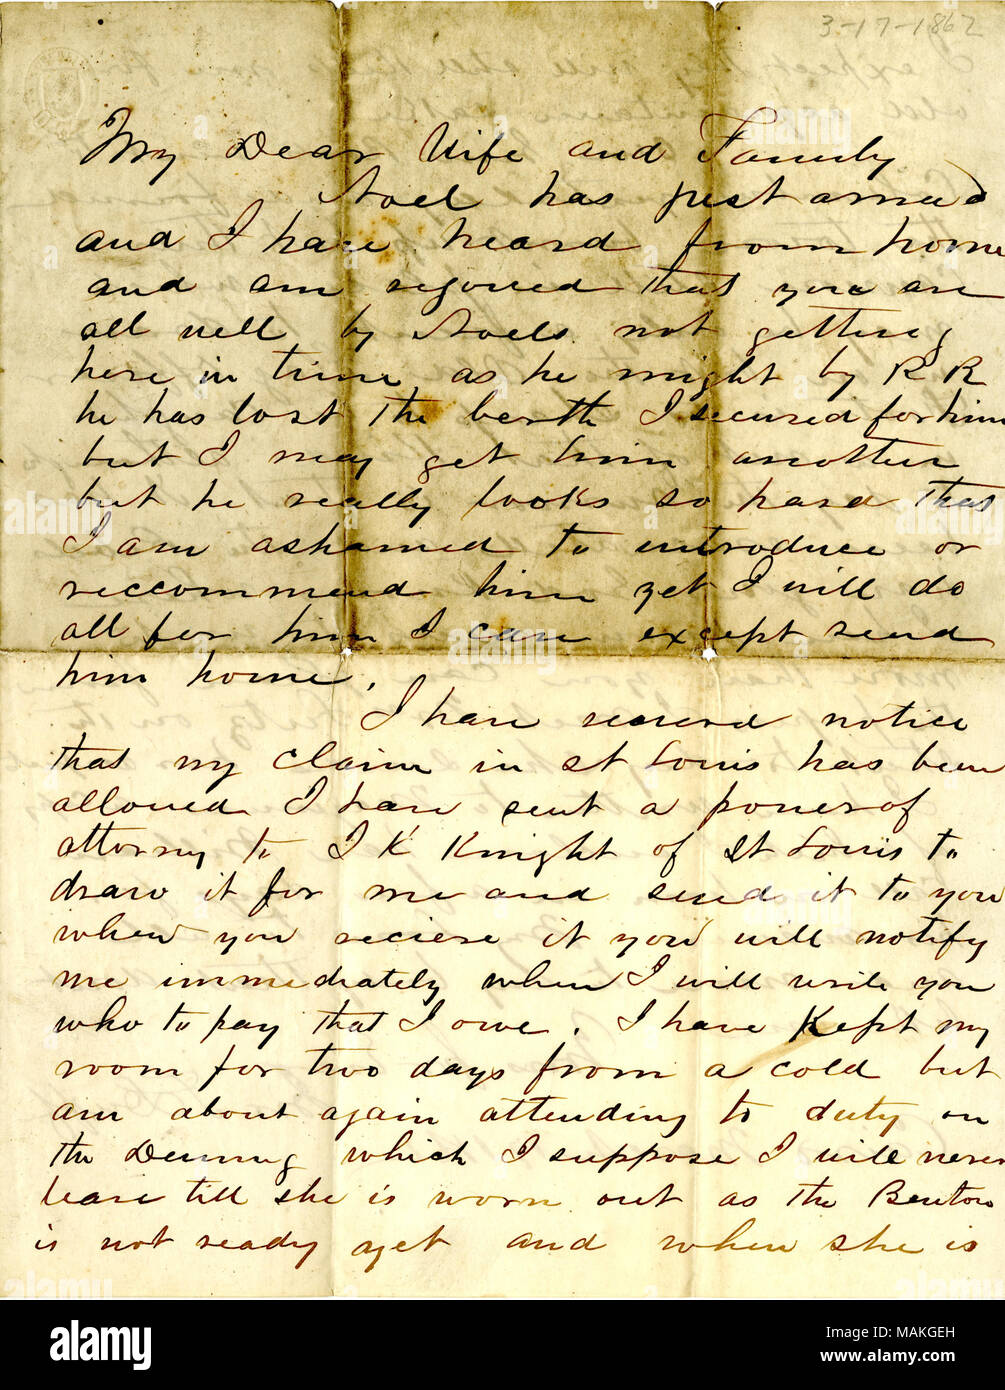 3-17-1862
My Dear Wife and Family
Noel has just arived
and I have heard from home
and am rejoiced that you are
all well by Noels not getting
here in time as he might by R R
he has lost the berth I secured for him
but I may get him another
but he really looks so hard that
I am ashamed to introduce or
reccommend him yet I will do
all for him I can except send
him home.
I have received notice
that my claim in St Louis has been
allowed I have sent a power of
attorny to J K Knight of St Louis to
draw it for me and send it to you
when you reciese it you will notify
me immediately when I will write you
who to pay that I owe. I have Kept my
room for two days from a cold but
am about again attending to duty on
the Deming which I suppose I will never
leave till she is worn out as the Benton
is not ready yet and when she is
alamy
Image ID: MAKGEH
www.alamy.com